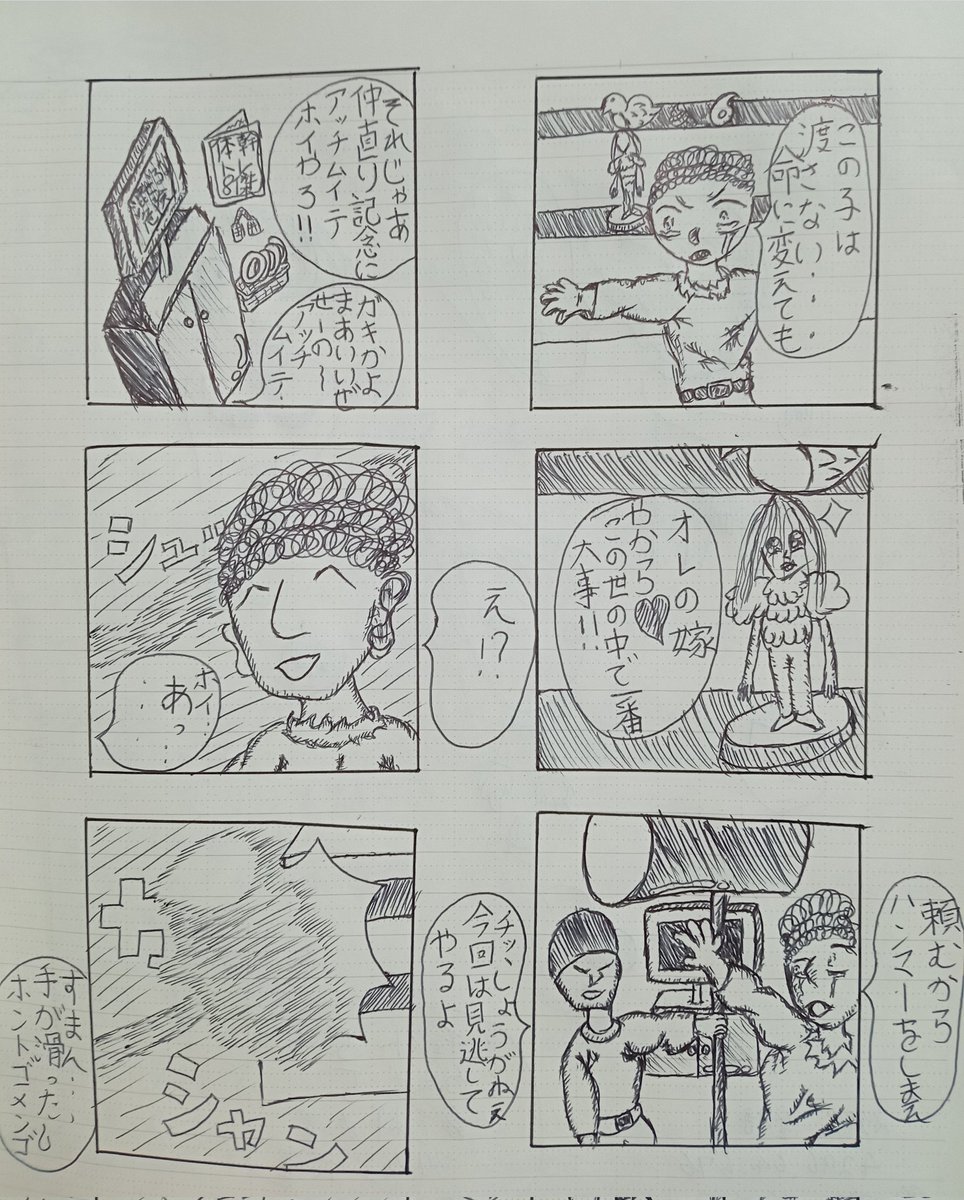 この子は
渡さない・・・
命に変えても
オレの嫁
やから♥
この世の中で一番
大事!!
頼むから
ハンマーをしまえ
チッ、しょうがねぇ
今回は見逃して
やるよ
それじゃあ
仲直り記念に
アッチムイテ
ホイやろ!!
体幹
トレ
8選
ガキかよ
まあいいぜ
せーの〜
アッチ
ムイテ・
シュッ
え!?
ホイ…
あっ…
ガ
シャン
すまん・・・
手が滑ったし
ホントゴメンゴ